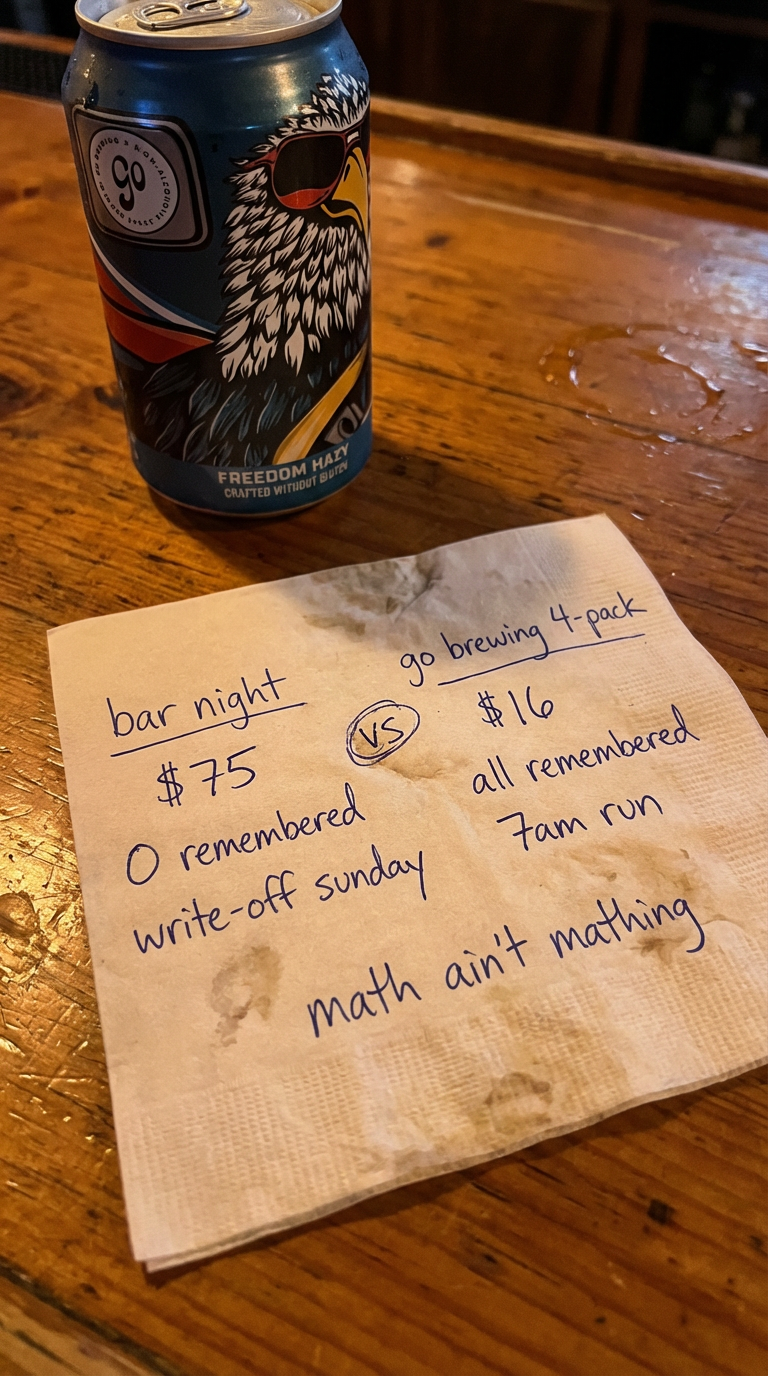 go
FREEDOM HAZY
CRAFTED WITHOUT GLUTEN
bar night
$75
0 remembered
write-off sunday
vs
go brewing 4-pack
$16
all remembered
7am run
math ain't mathing